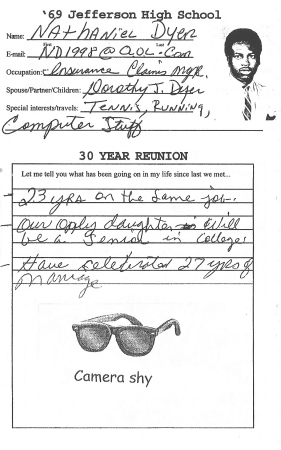 '69 Jefferson High School
Name: Nathaniel Dyer
E-mail: ND1998@AOL.Com
Occupation: Insurance Claims Mgr.
Spouse/Partner/Children: Dorothy J. Dyer
Special interests/travels: Tennis, Running,
Computer Stuff
30 YEAR REUNION
Let me tell you what has been going on in my life since last we met...
- 23 yrs on the same job.
- Our only daughter will
be a senior in College
- Have celebrated 27 yrs of
marriage
Camera shy